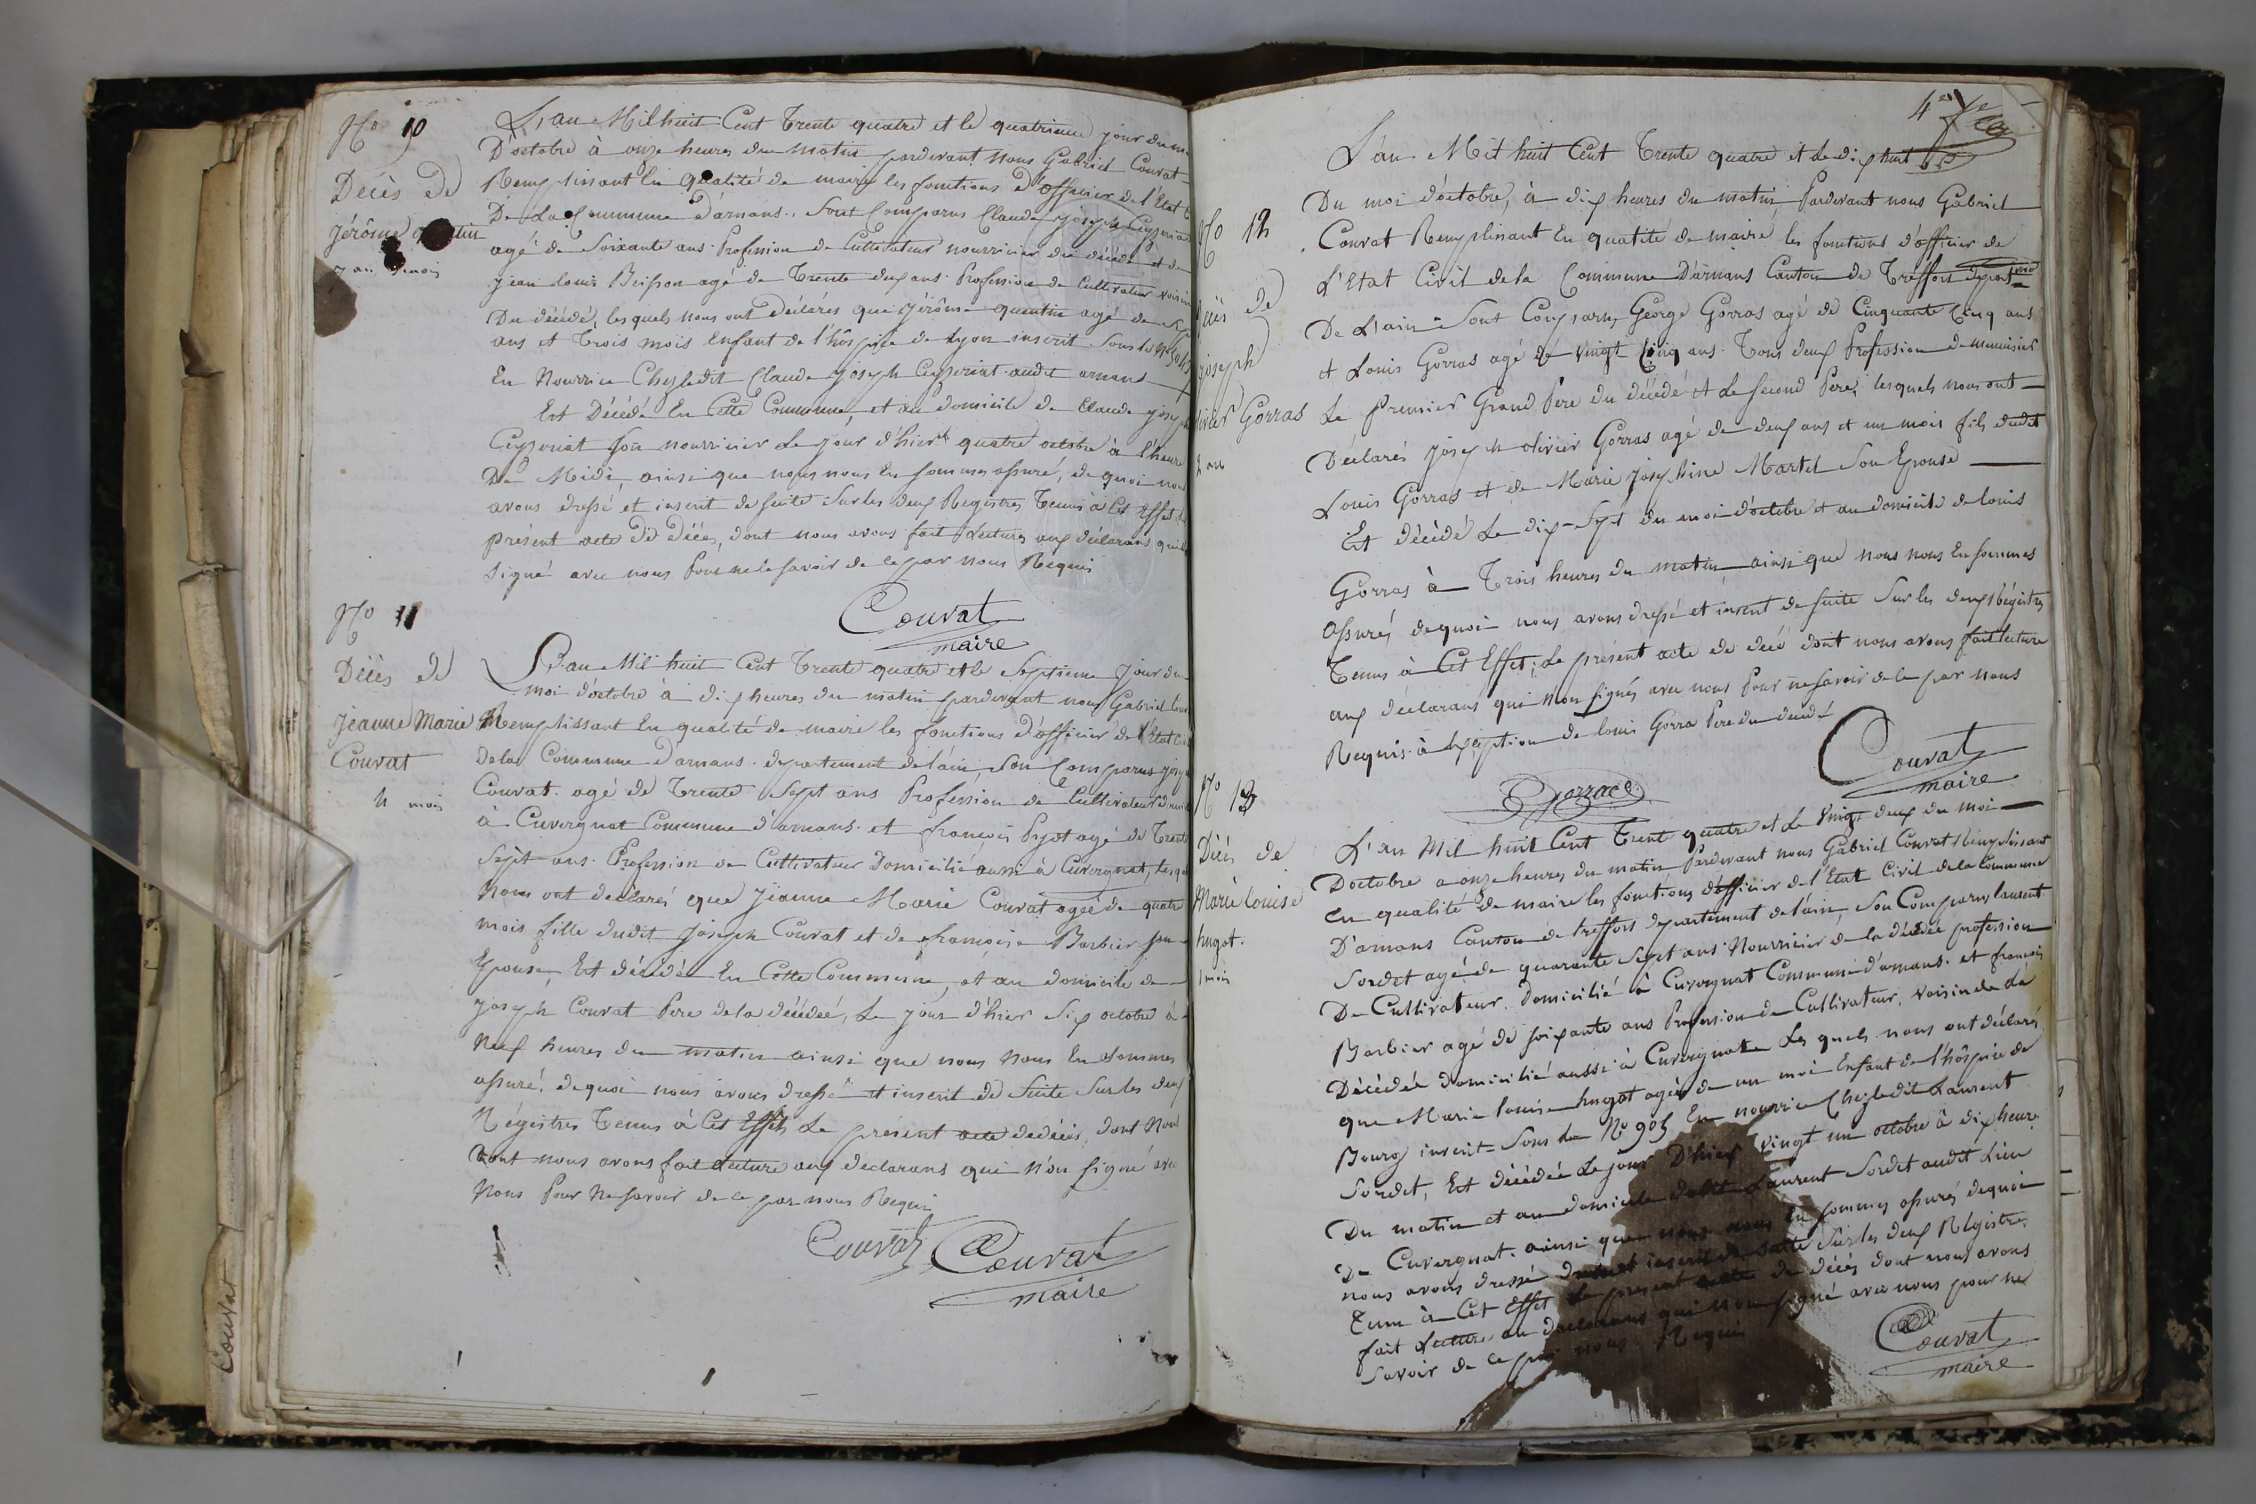 No 10
Décès de
jérôme quentin
7 an 3 mois
L'an Mil huit Cent Trente quatre et le quatrieme jour du mo
D'octobre à onze heures du matin pardevant nous Gabriel Couvat
Remplissant En qualité de maire les fonctions d'officier de l'Etat C
De La Commune d'arnans. Sont Comparus Claude joseph Ceyzeriat
agé de Soixante ans Profession de Cultivateur nourricier du décédé et de
jean louis Buisson agé de Trente deux ans Profession de Cultivateur voisin
Du décédé, lesquels nous ont déclarés que jérôme quentin agé de Sept
ans et Trois mois Enfant de l'hospice de Lyon inscrit Sous le No
En Nourrice Chez ledit Claude joseph Ceyzeriat audit arnans
Est Décédé En Cette Commune, et au domicile de Claude josep
Ceyzeriat Son nourricier Le jour d'hier quatre octobre à l'heure
De Midi, ainsi que nous nous En sommes assuré, de quoi nous
avons dressé et inscrit de suite Sur les deux Registres Tenus à Cet Effet le
présent acte de Décès, dont nous avons fait Lecture aux déclarans qui n'on
Signé avec nous Pour ne le savoir de ce par nous Requis
Couvat
maire
No 11
Décès de
jeanne Marie
Couvat
4 mois
L'an Mil huit Cent Trente quatre et le Septieme jour du
moi d'octobre à dix heures du matin pardevant nous Gabriel Couv
Remplissant En qualité de maire les fonctions d'officier de l'Etat Civ
de la Commune d'arnans. departement de l'ain, Son Comparus josep
Couvat. agé de Trente Sept ans Profession de Cultivateur domici
à Cuvergnat Commune d'arnans. et françois Pyot agé de Trente
Sept ans. Profession de Cultivateur Domicilié aussi à Cuvergnat, lesque
Nous ont declarés que jeanne Marie Couvat ageé de quatre
mois fille dudit joseph Couvat et de françoise Barbier son
Epouse, Est décédée En Cette Commune, et au domicile de
joseph Couvat Pere de la décédeé, Le jour d'hier Six octobre à
Neuf heures du matin ainsi que nous Nous En sommes
assuré. de quoi nous avons dressé et inscrit de Suite Sur les deux
Régistres Tenus à Cet Effet, Le présent acte de décés, dont Nous
dont nous avons fait Lecture aux declarans qui n'on signé ave
Nous Pour Ne savoir de ce par nous Requis
Couvat Couvat
maire
Couvat
4e
No 12
Décès de
joseph
olivier Gorras
2 an
L'an Mil huit Cent Trente quatre et Le dix huit
Du moi d'octobre, à dix heures du matin, Pardevant nous Gabriel
Couvat Remplissant En qualité de maire les fonctions d'officier de
L'Etat Civil de la Commune D'arnans Canton de Treffort depart.mt
De L'ain Sont Comparus George Gorras agé de Cinquante Cinq ans
et Louis Gorras agé de vingt Cinq ans. Tous deux Profession de menuisier
Le Premier Grand Pere du décédé et Le second Pere, lesquels nous ont
Déclarés joseph olivier Gorras agé de deux ans et un mois fils dudit
Louis Gorras et de Marie joséphine Martel Son Epouse
Est décédé Le dix-Sept du moi d'octobre et au domicile de louis
Gorras à Trois heures du matin ainsi que nous nous En sommes
assurés dequoi nous avons dressé et inscrit de suite Sur les deux Régistres
Tenus à Cet Effet; Le présent acte de décé dont nous avons fait lecture
aux déclarans qui n'on signés avec nous Pour ne savoir de ce par nous
Requis à l'exception de louis Gorra Pere du décédé
Couvat
maire
Gorrace
No 13
Décès de
Marie louise
hugot.
1 moi
L'an Mil huit Cent Trente quatre et Le vingt deux du moi
D'octobre a onze heures du matin Pardevant nous Gabriel Couvat Remplissant
en qualité de maire les fonctions d'officier de l'Etat Civil de la Commune
D'arnans Canton de treffort departement de l'ain, Son Comparus laurent
Sordet agé de quarante Sept ans Nourricier de la décédé profession
De Cultivateur. Domicilié à Cuvergnat Commune d'arnans. et francois
Barbier agé de soixante ans Profession de Cultivateur. voisin de La
Décédée domicilié aussi à Cuvergnat Les quels nous ont déclarés
que Marie louise hugot ageé de un moi Enfant de l'hôspice de
Bourg inscrit Sous le No 903 En nourrice Chez ledit Laurent
Sordet, Est décédée Le jour D'hier vingt un octobre à dix heure
Du matin et au domicile dudit Laurent Sordet audit Lieu
De Cuvergnat. ainsi que nous nous En sommes assurés dequoi
nous avons dressé et inscrit de suite Sur les deux Régistres
Tenu à Cet Effet Le present acte de décès dont nous avons
fait Lecture au declarans qui n'on signé avec nous pour ne
Savoir de ce par nous Requis
Couvat
maire